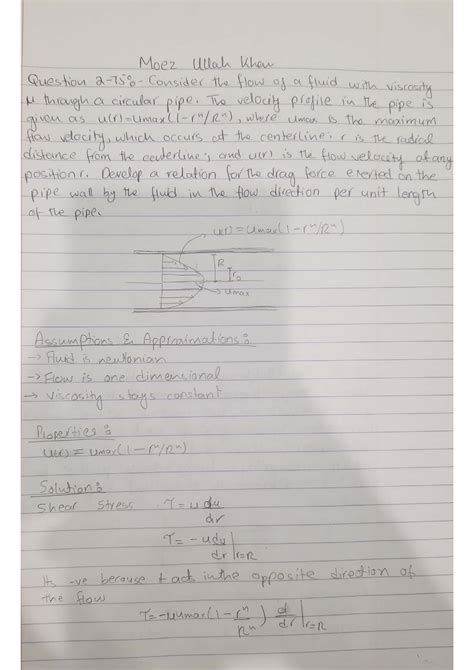 Moez Ullah Khan
Question 2-75:- Consider the flow of a fluid with viscosity
μ through a circular pipe. The velocity profile in the pipe is
given as u(r)=umax(1-rⁿ/Rⁿ), where umax is the maximum
flow velocity, which occurs at the centerline; r is the radial
distance from the centerline; and u(r) is the flow velocity at any
position r. Develop a relation for the drag force exerted on the
pipe wall by the fluid in the flow direction per unit length
of the pipe.
u(r) = umax(1-rⁿ/Rⁿ)
R
ro
umax
Assumptions & Approximations:
→ Fluid is newtonian
→ Flow is one dimensional
→ Viscosity stays constant
Properties:
u(r) = umax(1-rⁿ/Rⁿ)
Solution:
Shear Stress τ = u du/dr
τ = -u du/dr|r=R
Its -ve because τ acts in the opposite direction of
the flow
τ = -μumax(1-rⁿ/Rⁿ) d/dr|r=R